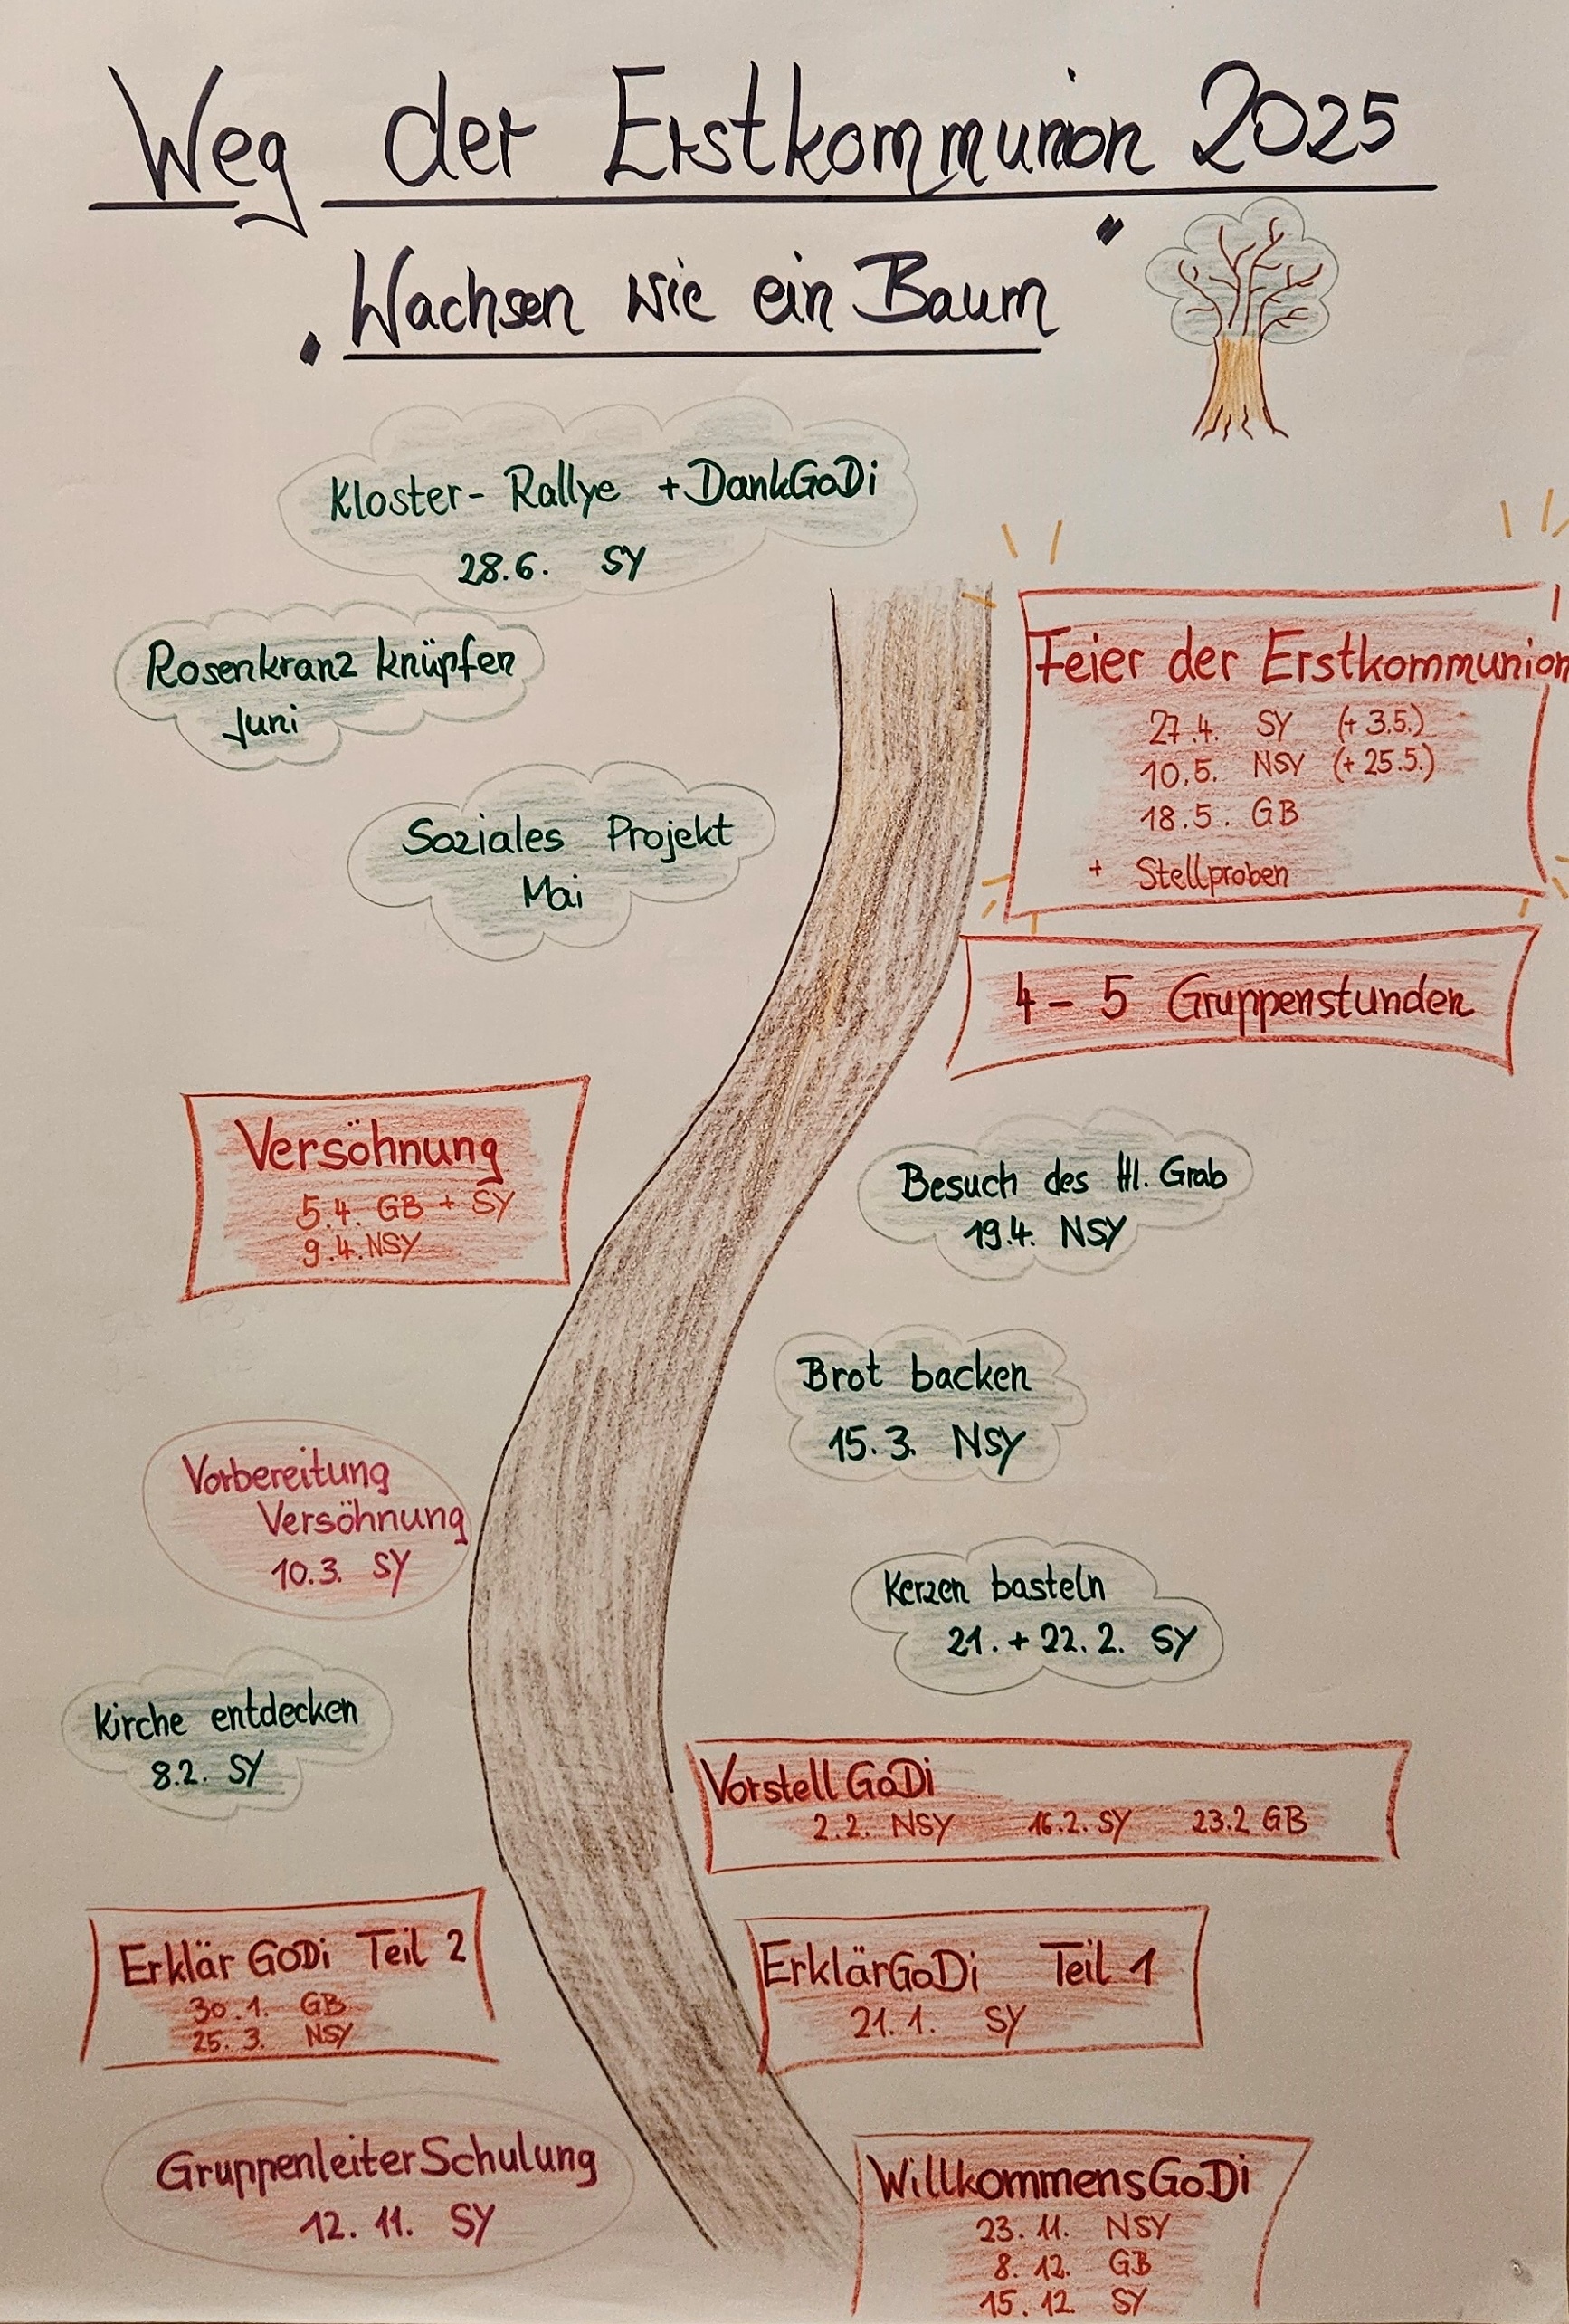 Weg der Erstkommunion 2025
„Wachsen wie ein Baum"
Kloster-Rallye + DankGoDi
28.6. SY
Rosenkranz knüpfen
Juni
Feier der Erstkommunion
27.4. SY (+ 3.5.)
10.5. NSY (+ 25.5.)
18.5. GB
+ Stellproben
Soziales Projekt
Mai
4 - 5 Gruppenstunden
Versöhnung
5.4. GB + SY
9.4. NSY
Besuch des Hl. Grab
19.4. NSY
Brot backen
15.3. NSY
Vorbereitung
Versöhnung
10.3. SY
Kerzen basteln
21. + 22.2. SY
Kirche entdecken
8.2. SY
VorstellGoDi
2.2. NSY 16.2. SY 23.2 GB
ErklärGoDi Teil 2
30.1. GB
25.3. NSY
ErklärGoDi Teil 1
21.1. SY
GruppenleiterSchulung
12.11. SY
WillkommensGoDi
23.11. NSY
8.12. GB
15.12. SY